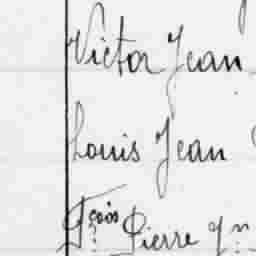 Victor Jean
Louis Jean
Fçois Pierre